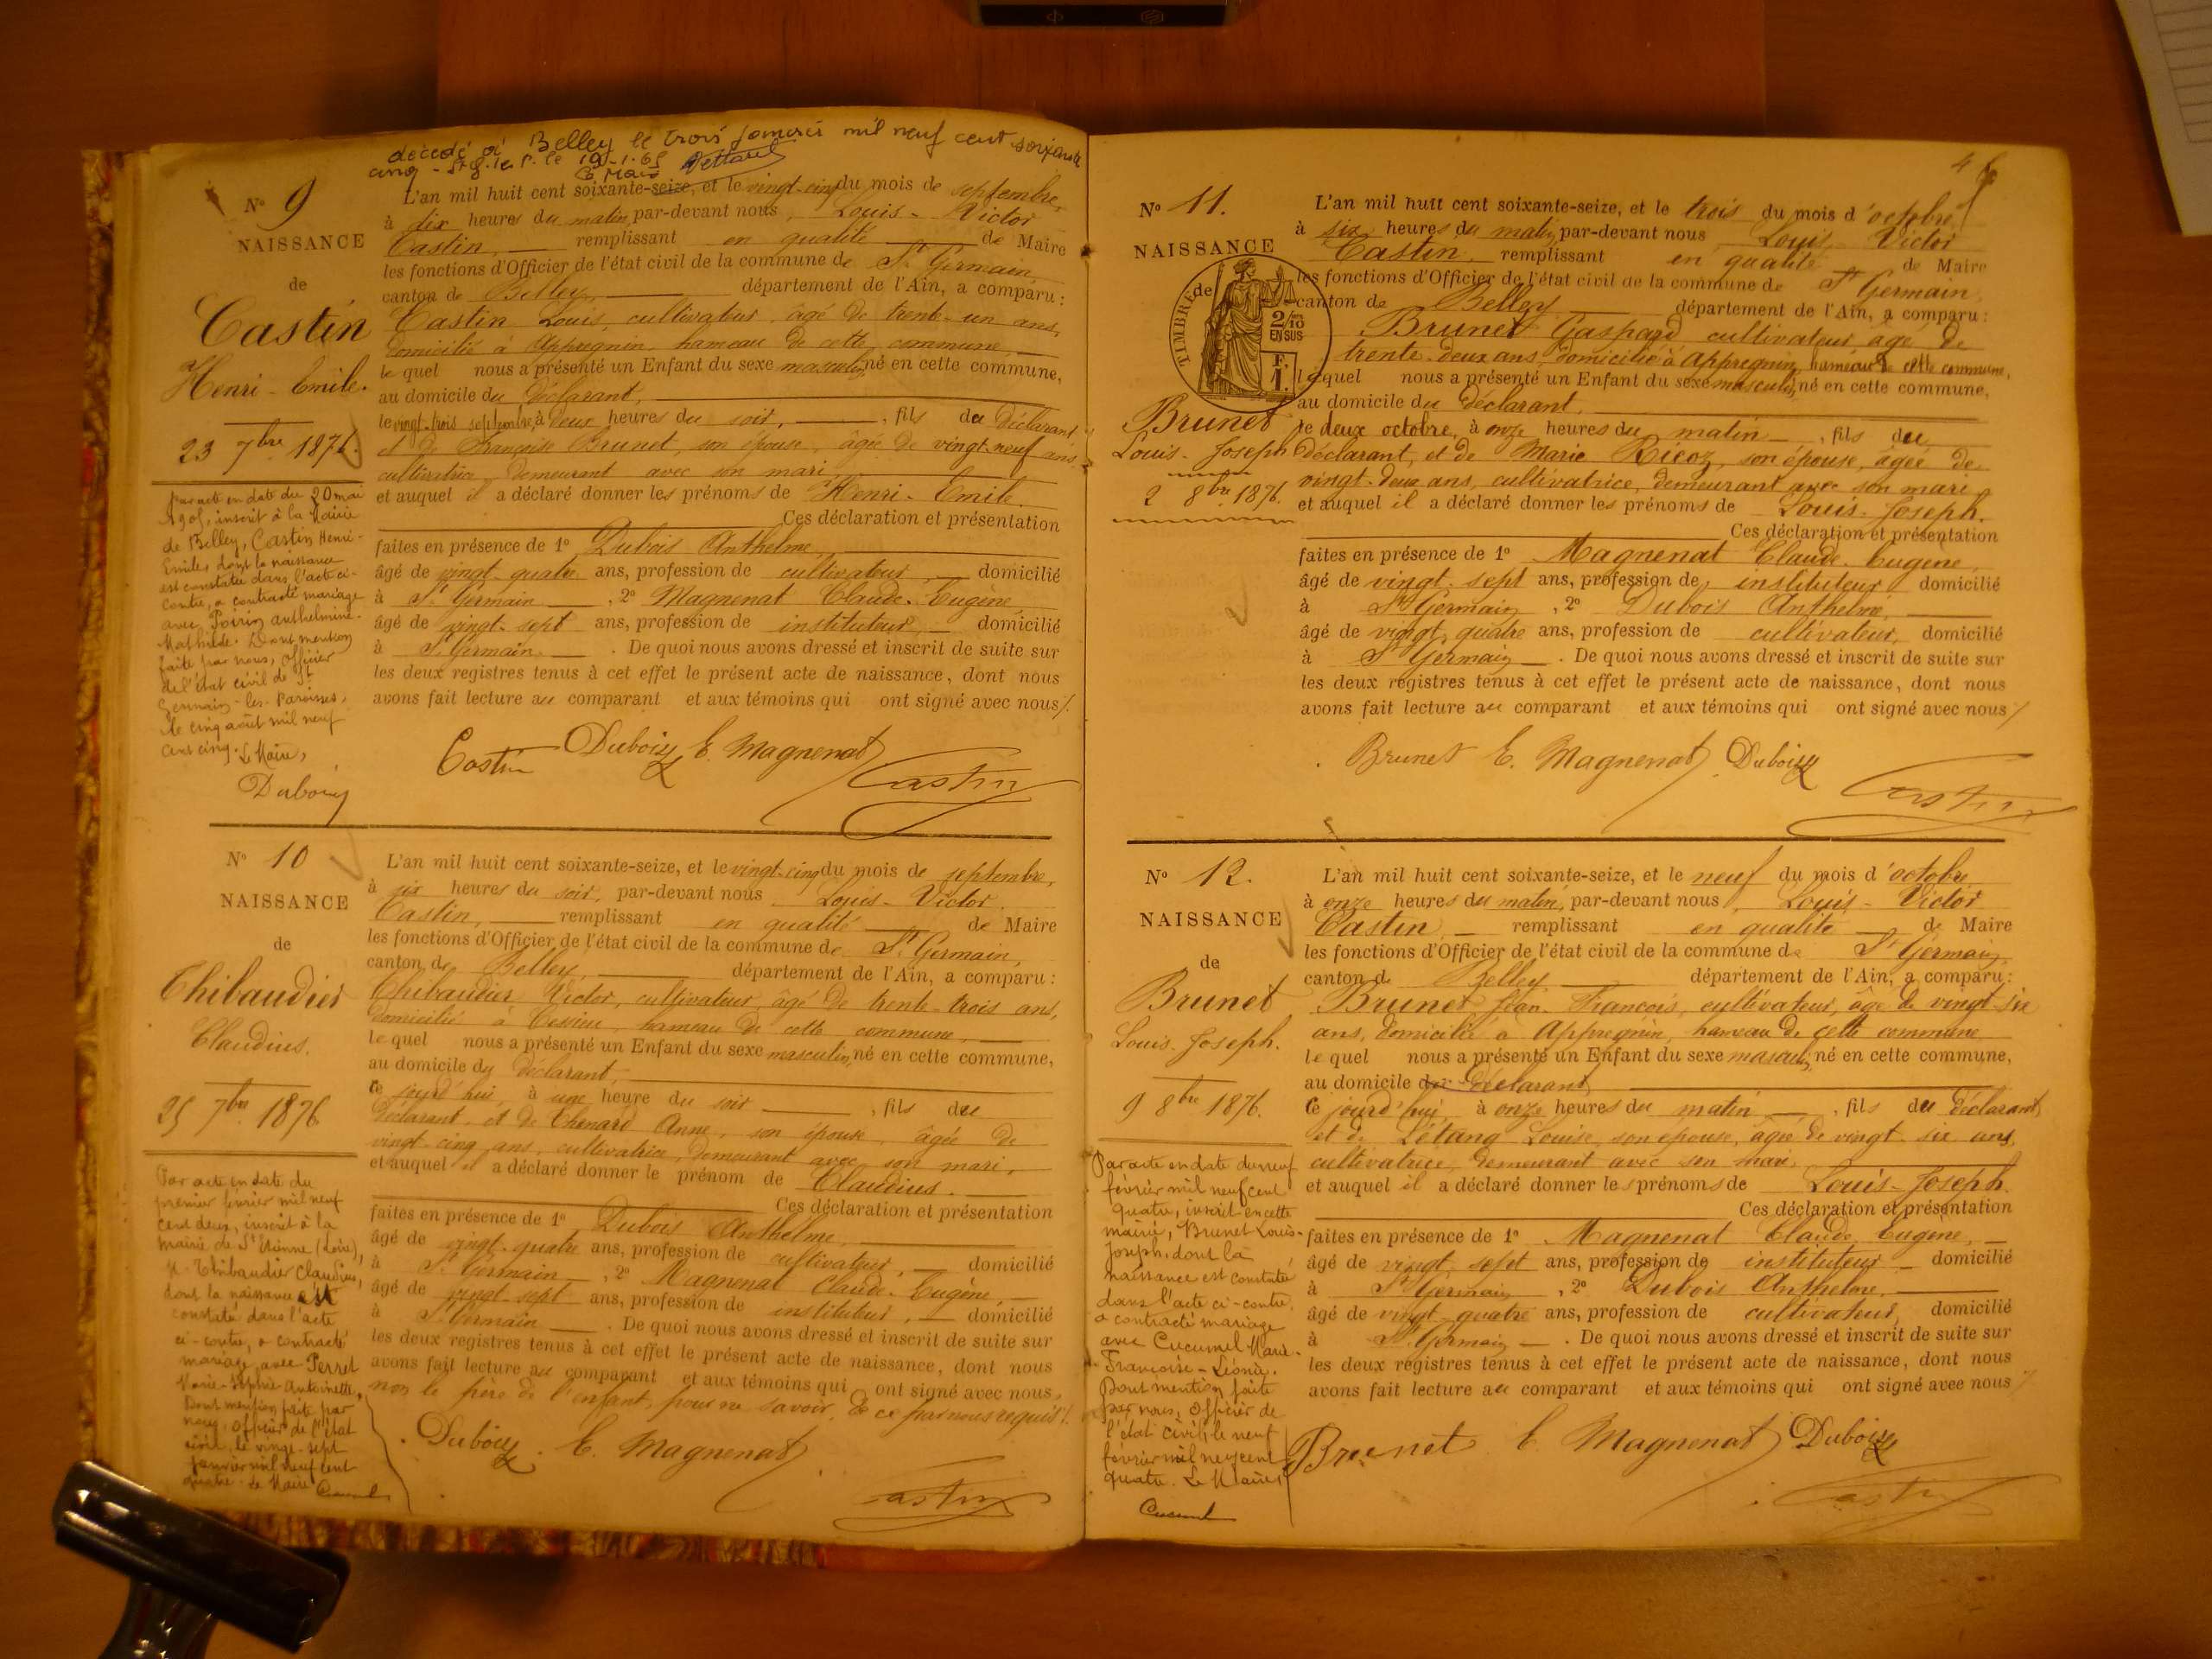 décédé à Belley le trois janvier mil neuf cent soixante
cinq - St G. les P. le 19-1-65
Le Maire
N° 9
NAISSANCE
de
Castin
Henri - Emile.
23 7bre 1876
Par acte en date du 20 mai
1905, inscrit à la Mairie
de Belley, Castin Henri-
Emile, dont la naissance
est constatée dans l'acte ci-
contre, a contracté mariage
avec Poirin Anthelmine-
Mathilde. Dont mention
faite par nous, Officier
de l'état civil de St
Germain-les-Paroisses,
le cinq août mil neuf
cent cinq. Le Maire,
Dubois
L'an mil huit cent soixante-seize, et le vingt-cinq du mois de septembre,
à dix heures du matin, par-devant nous, Louis - Victor
Castin, remplissant en qualité de Maire
les fonctions d'Officier de l'état civil de la commune de St Germain
canton de Belley, département de l'Ain, a comparu :
Castin Louis, cultivateur, âgé de trente-un ans,
domicilié à Appregnin, hameau de cette commune,
lequel nous a présenté un Enfant du sexe masculin, né en cette commune,
au domicile du déclarant,
le vingt-trois septembre à deux heures du soir, , fils du déclarant
et de Françoise Brunet, son épouse, âgée de vingt-neuf ans
cultivatrice, demeurant avec son mari
et auquel il a déclaré donner les prénoms de Henri - Emile.
Ces déclaration et présentation
faites en présence de 1° Dubois Anthelme,
âgé de vingt-quatre ans, profession de cultivateur, domicilié
à St Germain , 2° Magnenat Claude-Eugène
âgé de vingt-sept ans, profession de instituteur, domicilié
à St Germain . De quoi nous avons dressé et inscrit de suite sur
les deux registres tenus à cet effet le présent acte de naissance, dont nous
avons fait lecture au comparant et aux témoins qui ont signé avec nous /.
Castin Dubois E. Magnenat
Castin
N° 10
NAISSANCE
de
Thibaudier
Claudius.
25 7bre 1876
Par acte en date du
premier février mil neuf
cent deux, inscrit à la
mairie de St Etienne (Loire),
M. Thibaudier Claudius,
dont la naissance est
constatée dans l'acte
ci-contre, a contracté
mariage avec Perret
Marie-Sophie-Antoinette.
Dont mention faite par
nous, Officier de l'état
civil, le vingt-sept
janvier mil neuf cent
quatre. Le Maire
Cucumel
L'an mil huit cent soixante-seize, et le vingt-cinq du mois de septembre,
à six heures du soir, par-devant nous Louis - Victor
Castin, remplissant en qualité de Maire
les fonctions d'Officier de l'état civil de la commune de St Germain,
canton de Belley, département de l'Ain, a comparu :
Thibaudier Victor, cultivateur, âgé de trente-trois ans,
domicilié à Cessieu, hameau de cette commune,
lequel nous a présenté un Enfant du sexe masculin, né en cette commune,
au domicile du déclarant,
ce jourd'hui, à une heure du soir , fils du
déclarant, et de Thenard Anne, son épouse, âgée de
vingt-cinq ans, cultivatrice, demeurant avec son mari,
et auquel il a déclaré donner le prénom de Claudius.
Ces déclaration et présentation
faites en présence de 1° Dubois Anthelme,
âgé de vingt-quatre ans, profession de cultivateur, domicilié
à St Germain , 2° Magnenat Claude-Eugène,
âgé de vingt-sept ans, profession de instituteur, domicilié
à St Germain . De quoi nous avons dressé et inscrit de suite sur
les deux registres tenus à cet effet le présent acte de naissance, dont nous
avons fait lecture au comparant et aux témoins qui ont signé avec nous,
non le père de l'enfant, pour ne savoir, de ce par nous requis /.
Dubois E. Magnenat
Castin
4
N° 11.
NAISSANCE
de
TIMBRE
2/10
EN SUS
F.
1.
Brunet
Louis - Joseph
2 8bre 1876.
L'an mil huit cent soixante-seize, et le trois du mois d'octobre
à six heures du matin, par-devant nous Louis Victor
Castin, remplissant en qualité de Maire
les fonctions d'Officier de l'état civil de la commune de St Germain,
canton de Belley département de l'Ain, a comparu :
Brunet Gaspard cultivateur, âgé de
trente-deux ans, domicilié à Appregnin, hameau de cette commune,
lequel nous a présenté un Enfant du sexe masculin, né en cette commune,
au domicile du déclarant,
le deux octobre, à onze heures du matin , fils du
déclarant, et de Marie Ricoz, son épouse, âgée de
vingt-deux ans, cultivatrice, demeurant avec son mari,
et auquel il a déclaré donner les prénoms de Louis-Joseph.
Ces déclaration et présentation
faites en présence de 1° Magnenat Claude-Eugène,
âgé de vingt-sept ans, profession de instituteur domicilié
à St Germain , 2° Dubois Anthelme,
âgé de vingt-quatre ans, profession de cultivateur, domicilié
à St Germain . De quoi nous avons dressé et inscrit de suite sur
les deux registres tenus à cet effet le présent acte de naissance, dont nous
avons fait lecture au comparant et aux témoins qui ont signé avec nous /
Brunet E. Magnenat Dubois
Castin
N° 12.
NAISSANCE
de
Brunet
Louis-Joseph.
9 8bre 1876.
Par acte en date du neuf
février mil neuf cent
quatre, inscrit en cette
mairie, Brunet Louis-
Joseph, dont la
naissance est constatée
dans l'acte ci-contre,
a contracté mariage
avec Cucumel Marie-
Françoise-Léonie.
Dont mention faite
par nous, Officier de
l'état civil, le neuf
février mil neuf cent
quatre. Le Maire
Cucumel
L'an mil huit cent soixante-seize, et le neuf du mois d'octobre
à onze heures du matin, par-devant nous, Louis - Victor
Castin, remplissant en qualité de Maire
les fonctions d'Officier de l'état civil de la commune de St Germain,
canton de Belley, département de l'Ain, a comparu :
Brunet Jean-François, cultivateur, âgé de vingt-six
ans, domicilié à Appregnin, hameau de cette commune
lequel nous a présenté un Enfant du sexe masculin, né en cette commune,
au domicile du déclarant
ce jourd'hui à onze heures du matin , fils du déclarant
et de Létang Louise, son épouse, âgée de vingt-six ans,
cultivatrice, demeurant avec son mari,
et auquel il a déclaré donner les prénoms de Louis-Joseph.
Ces déclaration et présentation
faites en présence de 1° Magnenat Claude Eugène,
âgé de vingt-sept ans, profession de instituteur domicilié
à St Germain , 2° Dubois Anthelme,
âgé de vingt-quatre ans, profession de cultivateur, domicilié
à St Germain . De quoi nous avons dressé et inscrit de suite sur
les deux registres tenus à cet effet le présent acte de naissance, dont nous
avons fait lecture au comparant et aux témoins qui ont signé avec nous /
Brunet E. Magnenat Dubois
Castin